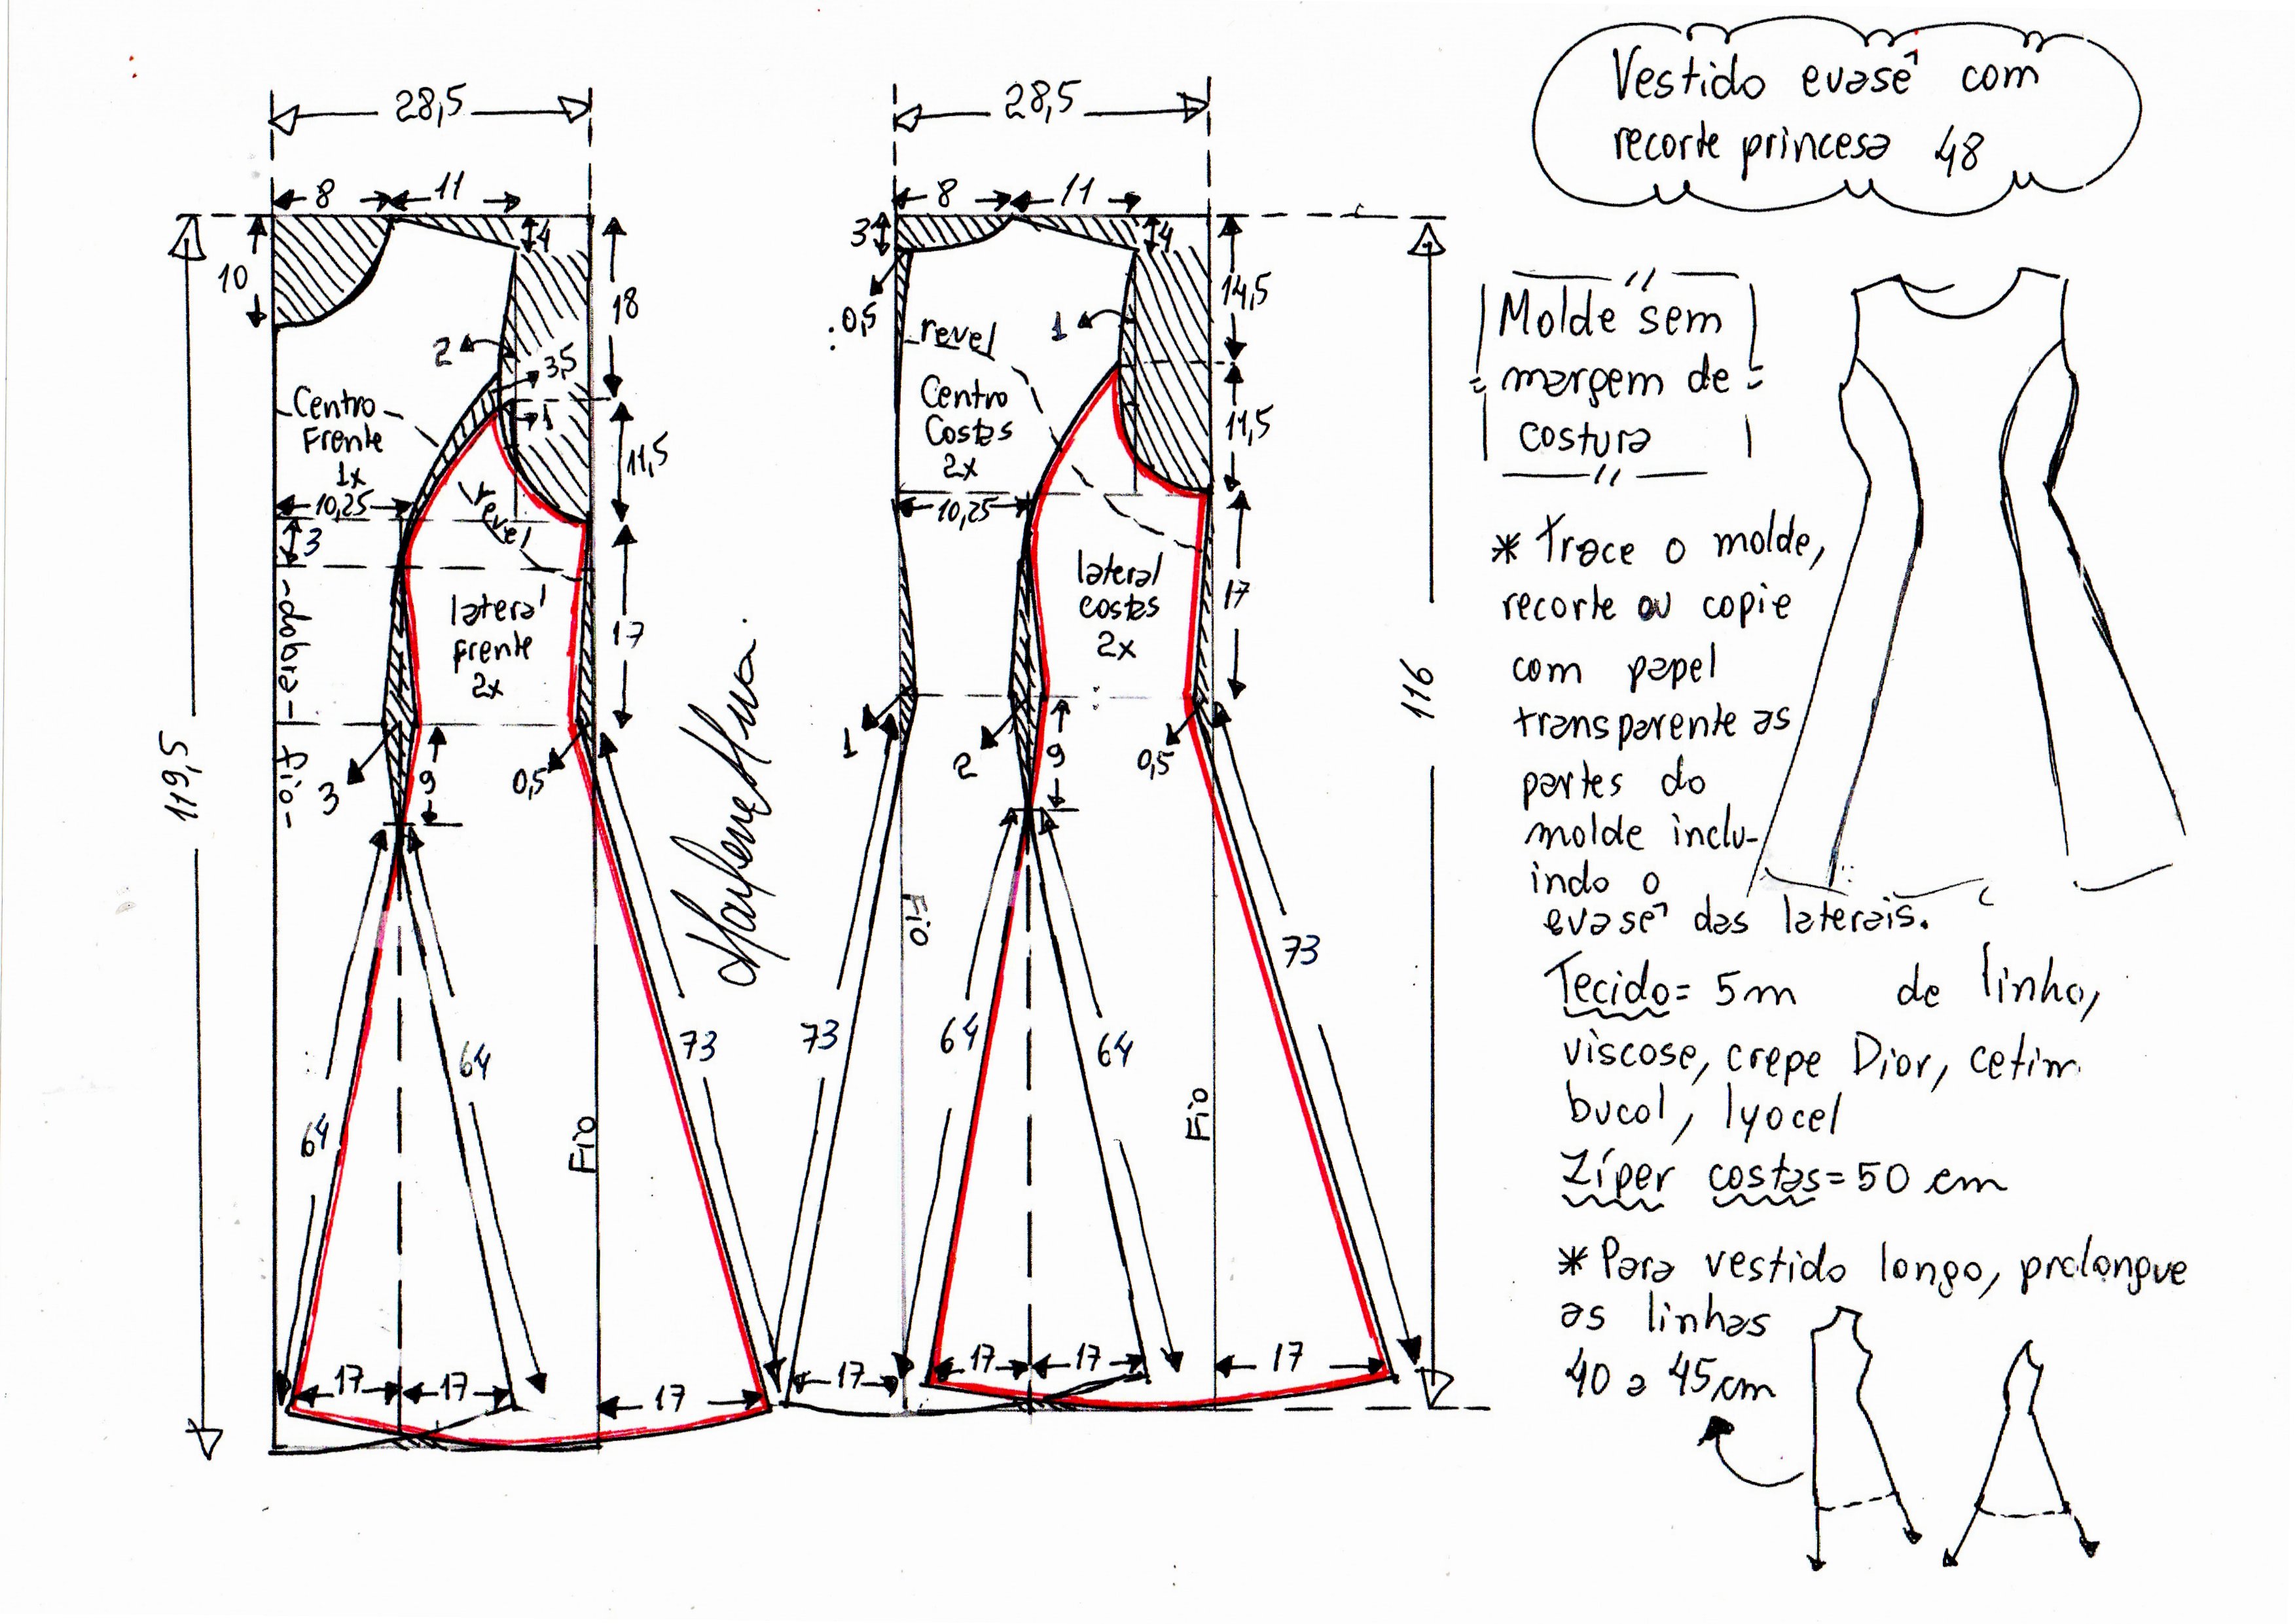 Vestido evasê com
recorte princesa 48
28,5
8
11
4
10
18
2
3,5
1
Centro
Frente
1x
11,5
10,25
3
revel
-dobra-
lateral
frente
2x
17
3
9
0,5
-fio-
119,5
64
64
73
Fio
17
17
17
Marlene Mukai.
28,5
8
11
3
4
0,5
14,5
revel
1
Centro
Costas
2x
11,5
10,25
lateral
costas
2x
17
1
2
9
0,5
116
Fio
73
64
64
73
Fio
17
17
17
17
Molde sem
margem de
costura
* Trace o molde,
recorte ou copie
com papel
transparente as
partes do
molde inclu-
indo o
evasê das laterais.
Tecido= 5m de linho,
viscose, crepe Dior, cetim
bucol, lyocel
Zíper costas= 50 cm
* Para vestido longo, prolongue
as linhas
40 a 45cm